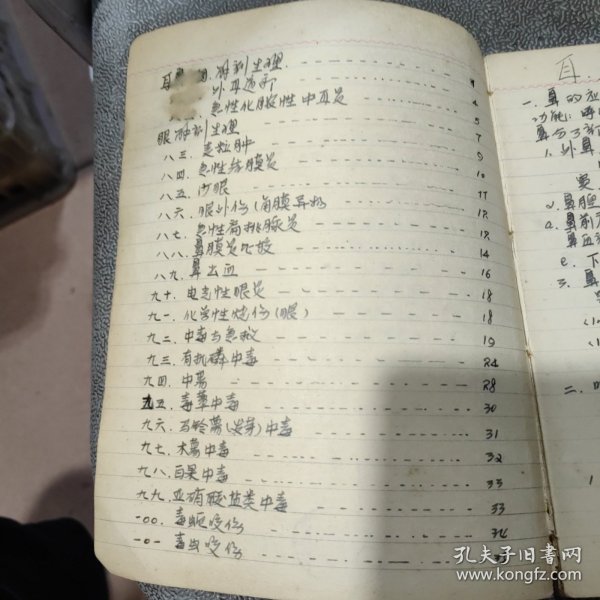 外耳道疖 4
急性化脓性中耳炎 5
眼解剖生理 7
八三. 麦粒肿 9
八四. 急性结膜炎 10
八五. 沙眼 11
八六. 眼外伤(角膜异物 12
八七. 急性扁桃腺炎 12
八八. 14
八九. 鼻出血 16
九十. 电光性眼炎 18
九一. 化学性烧伤(眼) 18
九二. 中毒与急救 19
九三. 有机磷中毒 24
九四. 中毒 28
九五. 毒蕈中毒 30
九六. 马铃薯(发芽)中毒 31
九七. 木薯中毒 32
九八. 白果中毒 33
九九. 亚硝酸盐类中毒 33
一00. 毒蛇咬伤 34
一0一 毒虫咬伤
耳
一. 鼻的应
功能:
1. 外鼻
鼻腔
a. 鼻前
鼻血
e. 下
3. 鼻
二.
孔夫子旧书网
www.kongfz.com